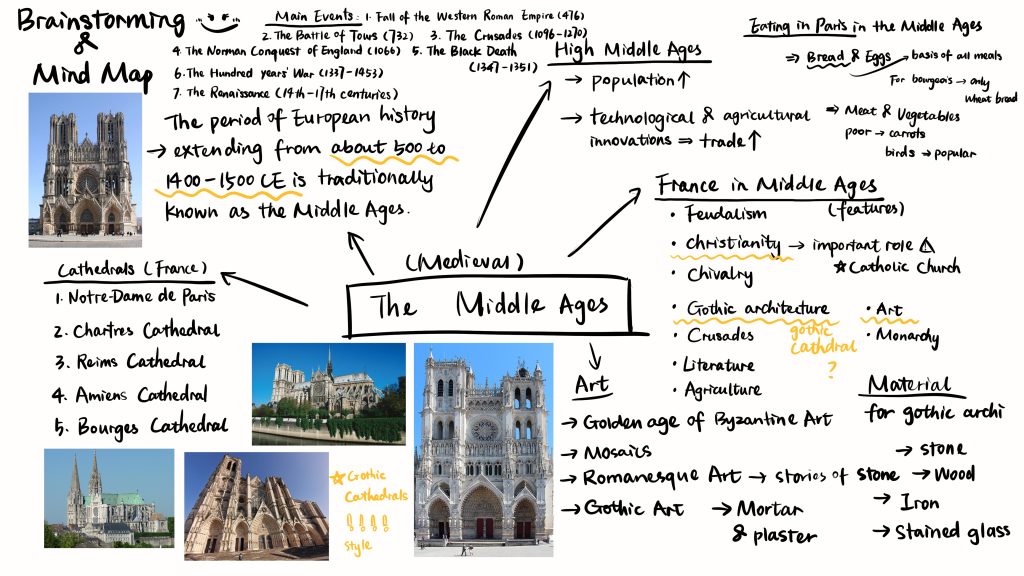 Brainstorming
&
Mind Map
Main Events: 1. Fall of the Western Roman Empire (476)
2. The Battle of Tours (732) 3. The Crusades (1096-1270)
4. The Norman Conquest of England (1066) 5. The Black Death
(1347-1351)
6. The Hundred years' War (1337-1453)
7. The Renaissance (14th-17th centuries)
The period of European history
→ extending from about 500 to
1400-1500 CE is traditionally
known as the Middle Ages.
High Middle Ages
→ population↑
→ technological & agricultural
innovations ⇒ trade↑
Eating in Paris in the Middle Ages
⇒ Bread & Eggs basis of all meals
For bourgeois → only
wheat bread
⇒ Meat & Vegetables
poor → carrots
birds → popular
France in Middle Ages
(features)
• Feudalism
• christianity → important role ⚠
☆ Catholic Church
• Chivalry
• Gothic architecture
• Art
• Crusades
gothic
cathdral
?
• Monarchy
• Literature
• Agriculture
(Medieval)
The Middle Ages
Cathedrals (France)
1. Notre-Dame de Paris
2. Chartres Cathedral
3. Reims Cathedral
4. Amiens Cathedral
5. Bourges Cathedral
☆ Gothic
Cathedrals
!!!!
style
Art
→ Golden age of Byzantine Art
→ Mosaics
→ Romanesque Art → stories of stone
→ Gothic Art
Material
for gothic archi
→ stone
→ Wood
→ Iron
→ Stained glass
→ Mortar
& plaster